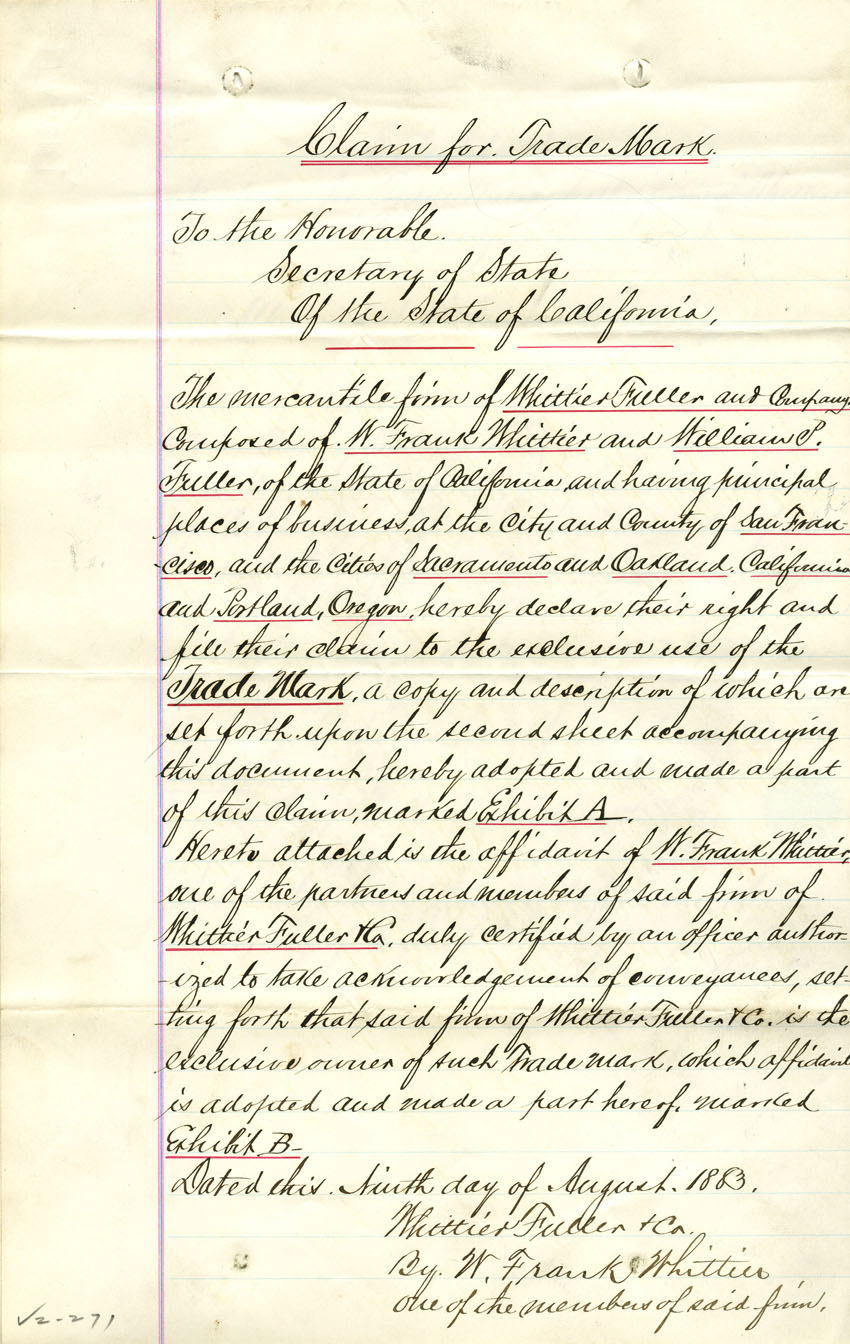 Claim for. Trade Mark.
To the Honorable.
Secretary of State
Of the State of California,
The mercantile firm of Whittier Fuller and Company
Composed of. W. Frank Whittier and William P.
Fuller, of the State of California, and having principal
places of business, at the City and County of San Fran-
-cisco, and the Cities of Sacramento and Oakland. California
and Portland, Oregon, hereby declare their right and
file their claim to the exclusive use of the
Trade Mark, a copy and description of which are
set forth upon the second sheet accompanying
this document, hereby adopted and made a part
of this claim, marked Exhibit A.
Hereto attached is the affidavit of W. Frank Whittier,
one of the partners and members of said firm of
Whittier Fuller & Co, duly certified by an officer author-
-ized to take acknowledgement of conveyances, set-
-ting forth that said firm of Whittier Fuller & Co. is the
exclusive owner of such Trade mark, which affidavit
is adopted and made a part hereof, marked
Exhibit B-
Dated this. Ninth day of August. 1883.
Whittier Fuller & Co.
By. W. Frank Whittier
one of the members of said firm.
√2-271